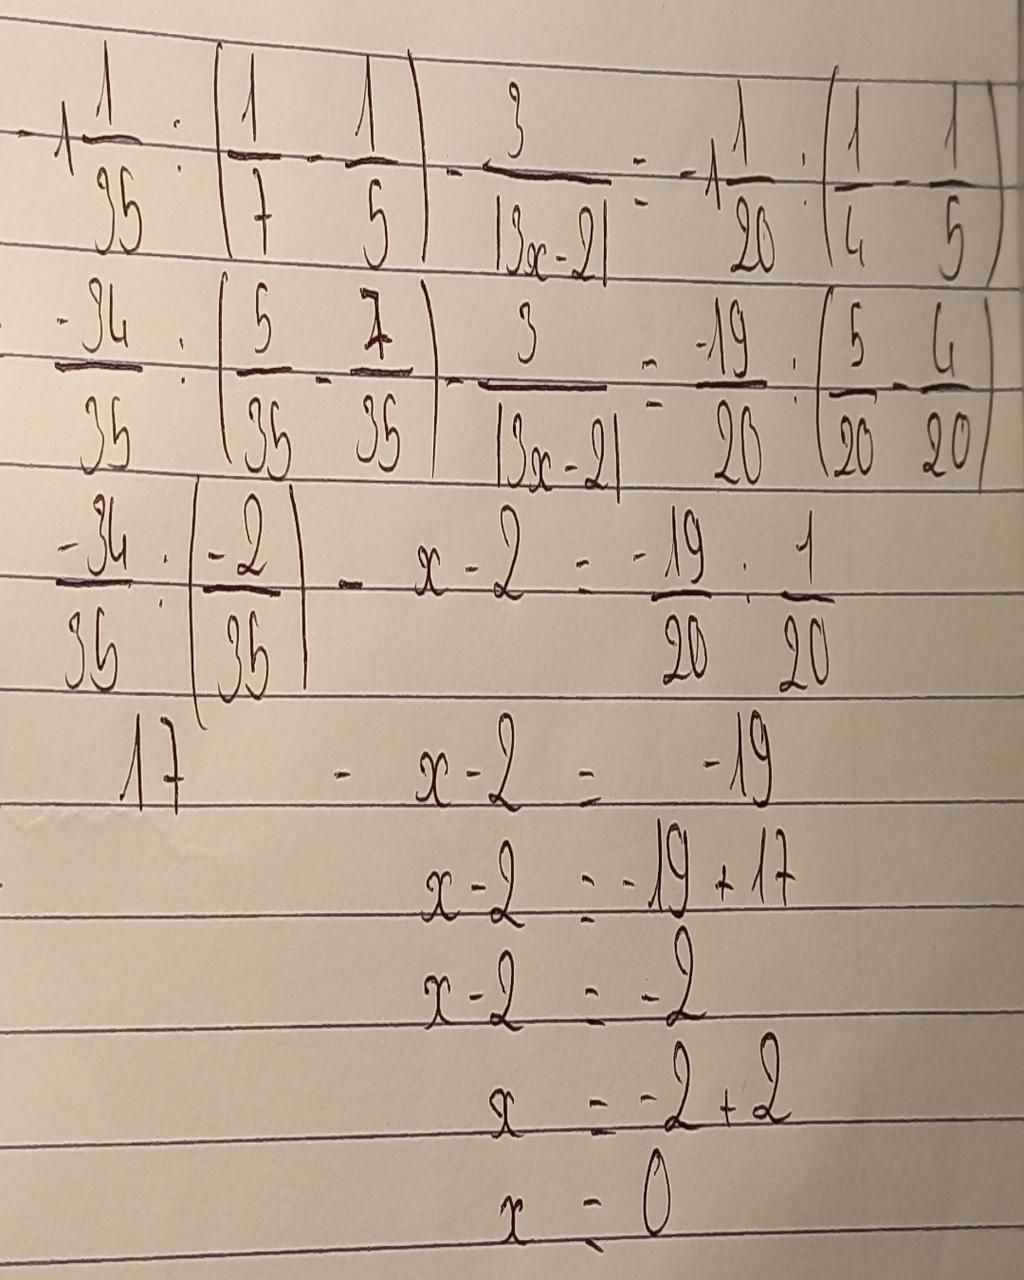 -1 1/35 : (1/7 - 1/5) - 3/|3x-2| = -1 1/20 : (1/4 - 1/5)
-34/35 : (5/35 - 7/35) - 3/|3x-2| = -19/20 : (5/20 - 4/20)
-34/35 : (-2/35) - x-2 = -19/20 : 1/20
17 - x-2 = -19
x-2 = -19+17
x-2 = -2
x = -2+2
x = 0